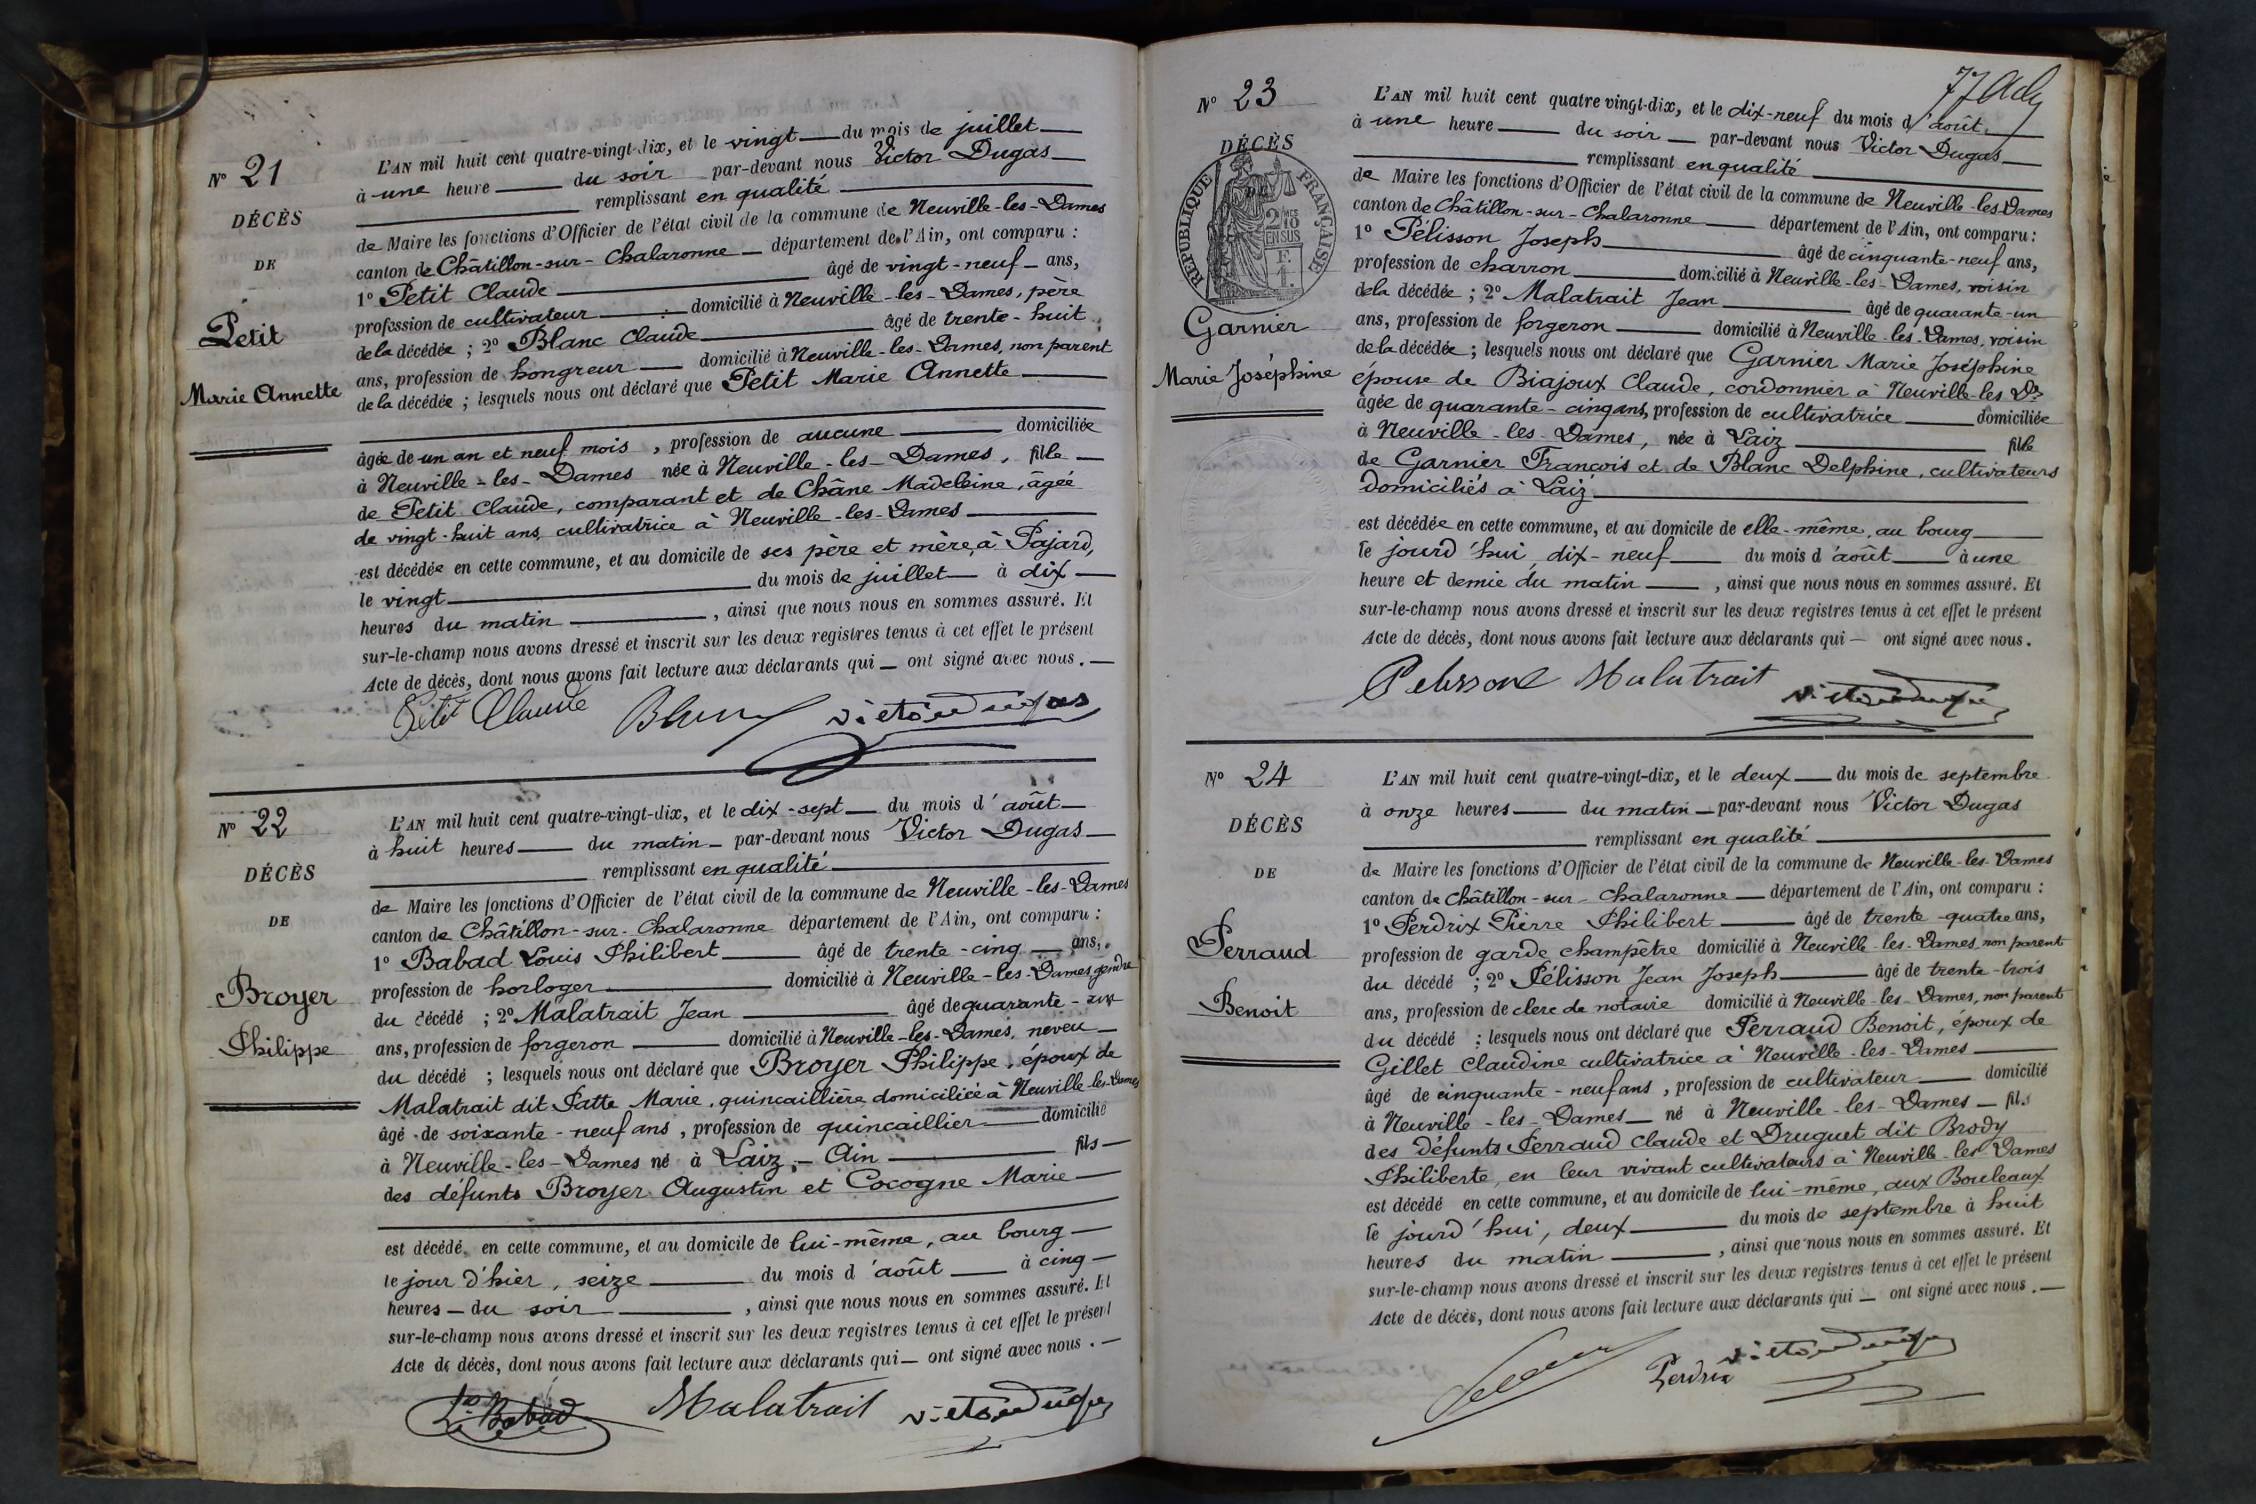 N° 21
DÉCÈS
DE
Petit
Marie Annette
L'AN mil huit cent quatre-vingt-dix, et le vingt du mois de juillet
à une heure du soir par-devant nous Victor Dugas
remplissant en qualité
de Maire les fonctions d'Officier de l'état civil de la commune de Neuville-les-Dames
canton de Châtillon-sur-Chalaronne département de l'Ain, ont comparu :
1° Petit Claude âgé de vingt-neuf ans,
profession de cultivateur domicilié à Neuville-les-Dames, père
de la décédée ; 2° Blanc Claude âgé de trente-huit
ans, profession de hongreur domicilié à Neuville-les-Dames, non parent
de la décédée ; lesquels nous ont déclaré que Petit Marie Annette
âgée de un an et neuf mois, profession de aucune domiciliée
à Neuville-les-Dames née à Neuville-les-Dames, fille
de Petit Claude, comparant et de Châne Madeleine, âgée
de vingt-huit ans, cultivatrice à Neuville-les-Dames
est décédée en cette commune, et au domicile de ses père et mère, à Pajard,
le vingt du mois de juillet à dix
heures du matin, ainsi que nous nous en sommes assuré. Et
sur-le-champ nous avons dressé et inscrit sur les deux registres tenus à cet effet le présent
Acte de décès, dont nous avons fait lecture aux déclarants qui ont signé avec nous.
Petit Claude Blanc Victor Dugas
N° 22
DÉCÈS
DE
Broyer
Philippe
L'AN mil huit cent quatre-vingt-dix, et le dix-sept du mois d'août
à huit heures du matin par-devant nous Victor Dugas
remplissant en qualité
de Maire les fonctions d'Officier de l'état civil de la commune de Neuville-les-Dames
canton de Châtillon-sur-Chalaronne département de l'Ain, ont comparu :
1° Babad Louis Philibert âgé de trente-cinq ans,
profession de horloger domicilié à Neuville-les-Dames gendre
du décédé ; 2° Malatrait Jean âgé de quarante-
ans, profession de forgeron domicilié à Neuville-les-Dames, neveu
du décédé ; lesquels nous ont déclaré que Broyer Philippe, époux de
Malatrait dit Patte Marie, quincaillière domiciliée à Neuville-les-Dames
âgé de soixante-neuf ans, profession de quincaillier domicilié
à Neuville-les-Dames né à Laiz, Ain fils
des défunts Broyer Augustin et Cocogne Marie
est décédé en cette commune, et au domicile de lui-même, au bourg
le jour d'hier, seize du mois d'août à cinq
heures du soir, ainsi que nous nous en sommes assuré. Et
sur-le-champ nous avons dressé et inscrit sur les deux registres tenus à cet effet le présent
Acte de décès, dont nous avons fait lecture aux déclarants qui ont signé avec nous.
Ls Babad Malatrait Victor Dugas
77
N° 23
DÉCÈS
RÉPUBLIQUE FRANÇAISE
2/10 MES
EN SUS
F.
1.
Garnier
Marie Joséphine
L'AN mil huit cent quatre vingt-dix, et le dix-neuf du mois d'août
à une heure du soir par-devant nous Victor Dugas
remplissant en qualité
de Maire les fonctions d'Officier de l'état civil de la commune de Neuville-les Dames
canton de Châtillon-sur-Chalaronne département de l'Ain, ont comparu :
1° Pélisson Joseph âgé de cinquante-neuf ans,
profession de charron domicilié à Neuville-les-Dames, voisin
de la décédée ; 2° Malatrait Jean âgé de quarante-un
ans, profession de forgeron domicilié à Neuville-les-Dames, voisin
de la décédée ; lesquels nous ont déclaré que Garnier Marie Joséphine
épouse de Biajoux Claude, cordonnier à Neuville-les Des
âgée de quarante-cinq ans, profession de cultivatrice domiciliée
à Neuville-les-Dames, née à Laiz fille
de Garnier François et de Blanc Delphine, cultivateurs
domiciliés à Laiz
est décédée en cette commune, et au domicile de elle-même, au bourg
le jourd'hui, dix-neuf du mois d'août à une
heure et demie du matin, ainsi que nous nous en sommes assuré. Et
sur-le-champ nous avons dressé et inscrit sur les deux registres tenus à cet effet le présent
Acte de décès, dont nous avons fait lecture aux déclarants qui ont signé avec nous.
Pelisson Malatrait Victor Dugas
N° 24
DÉCÈS
DE
Perraud
Benoit
L'AN mil huit cent quatre-vingt-dix, et le deux du mois de septembre
à onze heures du matin par-devant nous Victor Dugas
remplissant en qualité
de Maire les fonctions d'Officier de l'état civil de la commune de Neuville-les-Dames
canton de Châtillon-sur-Chalaronne département de l'Ain, ont comparu :
1° Perdrix Pierre Philibert âgé de trente-quatre ans,
profession de garde champêtre domicilié à Neuville-les-Dames, non parent
du décédé ; 2° Pélisson Jean Joseph âgé de trente-trois
ans, profession de clerc de notaire domicilié à Neuville-les-Dames, non parent
du décédé ; lesquels nous ont déclaré que Perraud Benoit, époux de
Gillet Claudine cultivatrice à Neuville-les-Dames
âgé de cinquante-neuf ans, profession de cultivateur domicilié
à Neuville-les-Dames né à Neuville-les-Dames fils
des défunts Perraud Claude et Druguet dit Brody
Philiberte, en leur vivant cultivateurs à Neuville-les-Dames
est décédé en cette commune, et au domicile de lui-même, aux Bouleaux
le jourd'hui, deux du mois de septembre à huit
heures du matin, ainsi que nous nous en sommes assuré. Et
sur-le-champ nous avons dressé et inscrit sur les deux registres tenus à cet effet le présent
Acte de décès, dont nous avons fait lecture aux déclarants qui ont signé avec nous.
Perdrix Victor Dugas